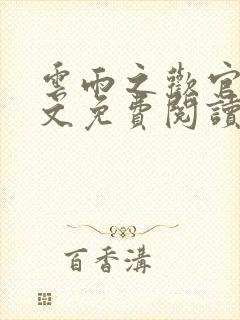 雲雨之歡官
文免費閱讀
百香溝